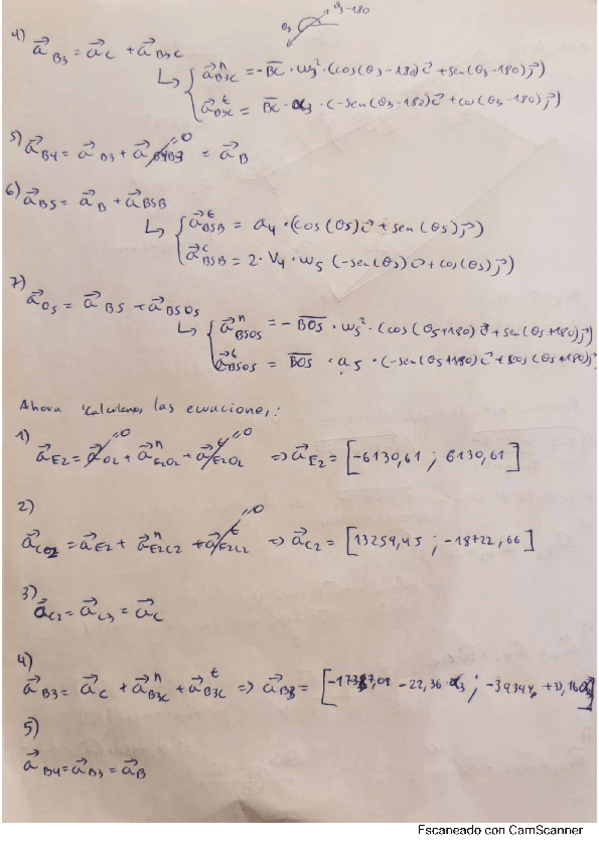 θ₃ θ₃-180
4) a⃗_B3 = a⃗_C + a⃗_B3C
↳ { a⃗ⁿ_B3C = - B̅C̅ · ω₃² · (cos(θ₃-180) i⃗ + sen(θ₃-180) j⃗)
a⃗ᵗ_B3C = B̅C̅ · α₃ · (-sen(θ₃-180) i⃗ + cos(θ₃-180) j⃗)
5) a⃗_B4 = a⃗_B3 + a⃗_B4B3 0 = a⃗_B
6) a⃗_B5 = a⃗_B + a⃗_B5B
↳ { a⃗ᵗ_B5B = a₄ · (cos(θ5) i⃗ + sen(θ5) j⃗)
a⃗ᶜ_B5B = 2 · V₄ · ω₅ (-sen(θ5) i⃗ + cos(θ5) j⃗)
7) a⃗_O5 = a⃗_B5 + a⃗_B5O5
↳ { a⃗ⁿ_B5O5 = - B̅O̅5̅ · ω₅² · (cos(θ5+180) i⃗ + sen(θ5+180) j⃗)
a⃗ᵗ_B5O5 = B̅O̅5̅ · α₅ · (-sen(θ5+180) i⃗ + cos(θ5+180) j⃗
Ahora calculamos las ecuaciones:
1) a⃗_E2 = a⃗_O2 0 + a⃗ⁿ_E2O2 + a⃗ᵗ_E2O2 0 => a⃗_E2 = [-6130,61 ; 6130,61]
2)
a⃗_C2 = a⃗_E2 + a⃗ⁿ_E2C2 + a⃗ᵗ_E2C2 =0 => a⃗_C2 = [13259,45 ; -18722,66]
3)
a⃗_C2 = a⃗_C3 = a⃗_C
4)
a⃗_B3 = a⃗_C + a⃗ⁿ_B3C + a⃗ᵗ_B3C => a⃗_B3 = [ -22,36 · α₃ ; ]
5)
a⃗_B4 = a⃗_B3 = a⃗_B
Escaneado con CamScanner